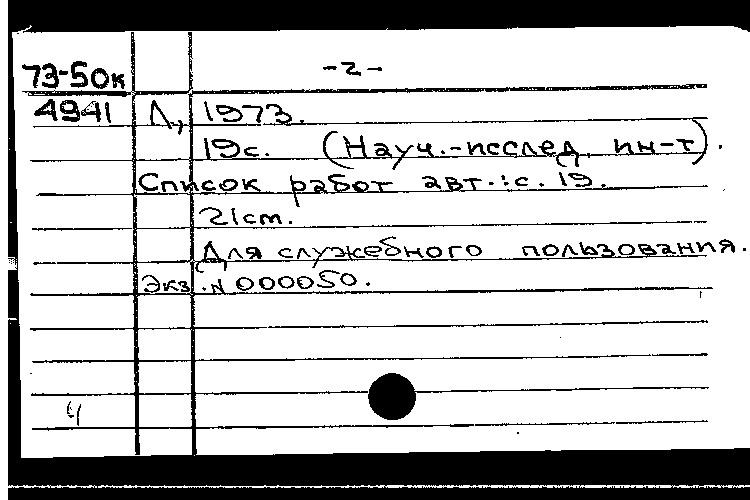 73-50к -2-
4941 Л., 1973.
19с. (Науч.-исслед. ин-т).
Список работ авт.: с. 19.
21cm.
Для служебного пользования.
Экз. N 000050.